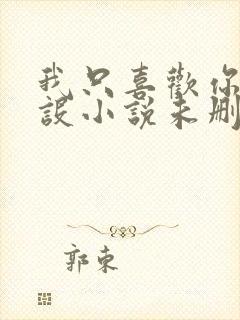 我只喜歡你
設小說未刪
郭東